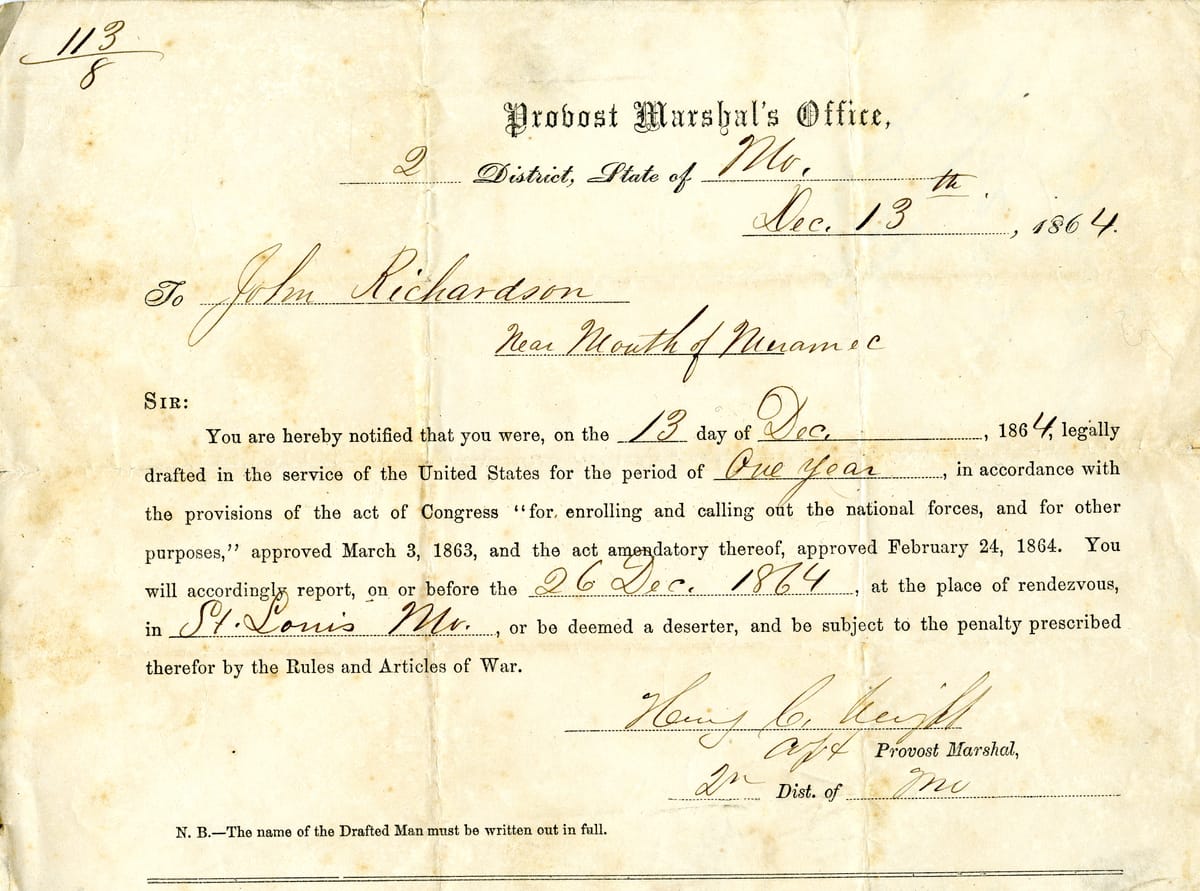 113
8
Provost Marshal's Office,
2 District, State of Mo.
Dec. 13th, 1864.
To John Richardson
Near Mouth of Meramec
SIR:
You are hereby notified that you were, on the 13 day of Dec., 1864, legally
drafted in the service of the United States for the period of One year, in accordance with
the provisions of the act of Congress “for enrolling and calling out the national forces, and for other
purposes,” approved March 3, 1863, and the act amendatory thereof, approved February 24, 1864. You
will accordingly report, on or before the 26 Dec. 1864, at the place of rendezvous,
in St. Louis Mo., or be deemed a deserter, and be subject to the penalty prescribed
therefor by the Rules and Articles of War.
Henry C.
Provost Marshal,
Dist. of Mo
N. B.—The name of the Drafted Man must be written out in full.